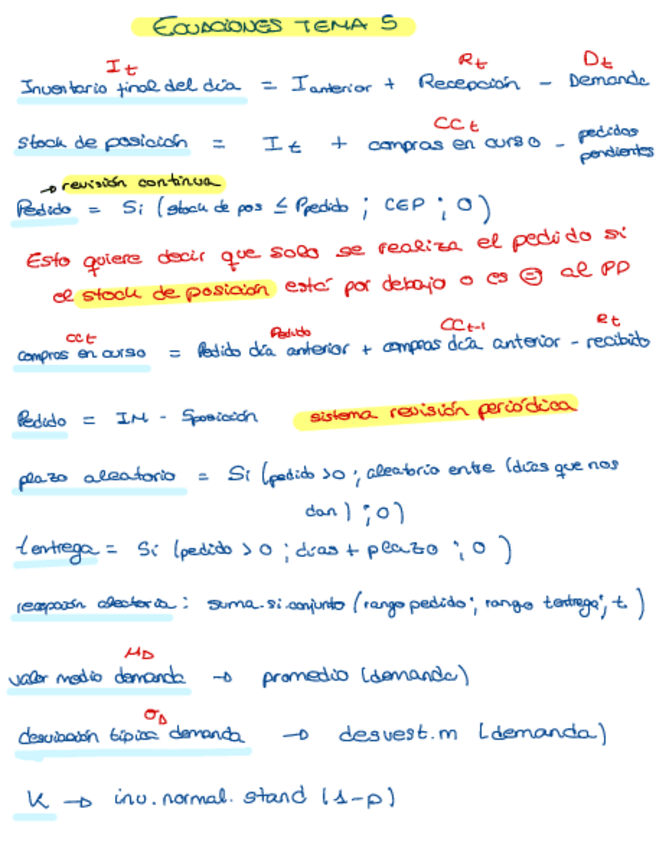 ECUACIONES TEMA 5
It Rt Dt
Inventario final del día = I anterior + Recepción - Demanda
CC t
stock de posición = I t + compras en curso - pedidos pendientes
→ revisión continua
Pedido = Si (stock de pos ≤ Ppedido ; CEP ; 0)
Esto quiere decir que solo se realiza el pedido si
el stock de posición está por debajo o es = al PP
CC t Pedido CC t-1 Rt
compras en curso = Pedido día anterior + compras día anterior - recibido
Pedido = IM - Sposición sistema revisión periódica
plazo aleatorio = Si (pedido >0 ; aleatorio entre (días que nos
dan) ; 0)
tentrega = Si (pedido > 0 ; días + plazo ; 0 )
recepción aleatoria : suma.si.conjunto (rango pedido ; rango tentrega ; t )
μD
valor medio demanda → promedio (demanda)
σD
desviación típica demanda → desvest.m (demanda)
K → inv.normal.stand (1-p)